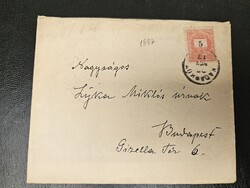 5
1897
Nagyságos
Lyka Miklós úrnak
Budapest
Gizella Tér 6.